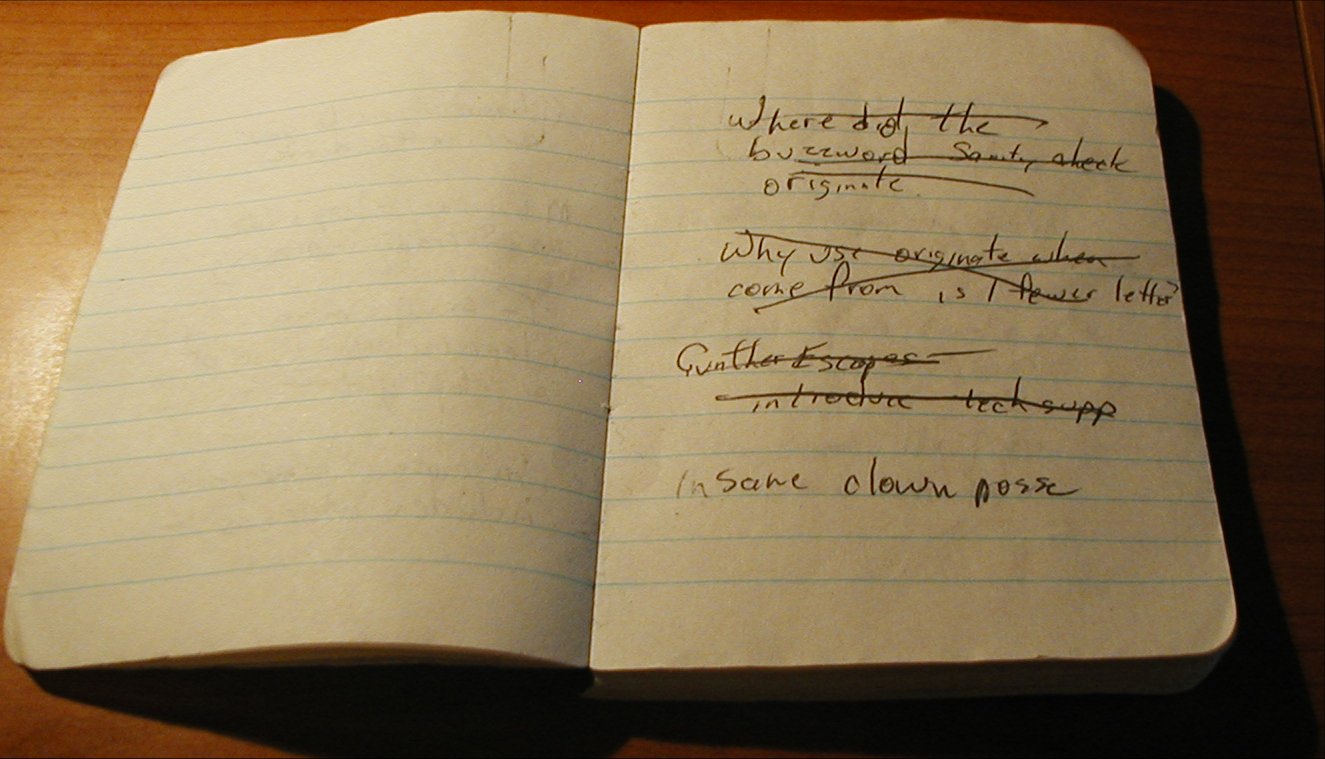 Where did the
buzzword Sanity check
originate.
Why use originate when
come from is 1 fewer letter?
Gunther Escapes
introduce tech supp
insane clown posse